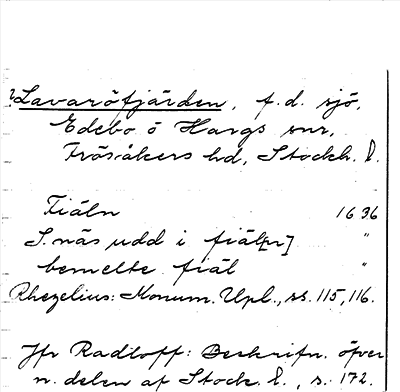 ?Lavaröfjärden, f.d. sjö,
Edebo o Hargs snr,
Frösåkers hd, Stockh. l.
Fiäln 1636
S. näs udd i fiäl[n] "
bemelte fiäl "
Rhezelius: Monum. Upl., ss. 115, 116.
Jfr Radloff: Beskrifn. öfver
n. delen af Stock. l., s. 172.